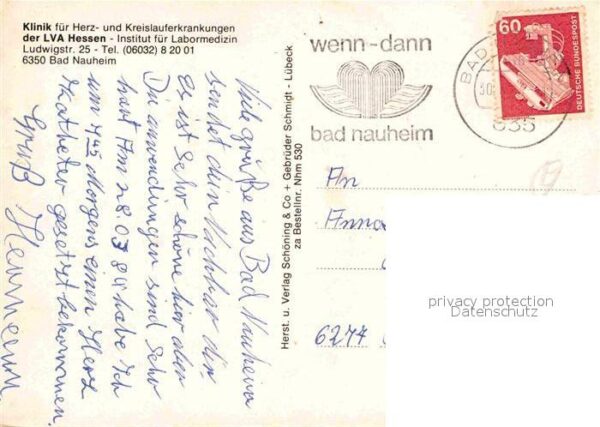 Klinik für Herz- und Kreislauferkrankungen
der LVA Hessen - Institut für Labormedizin
Ludwigstr. 25 - Tel. (06032) 8 20 01
6350 Bad Nauheim
Viele grüße aus Bad Nauheim
sendet dein Nachbar
Es ist sehr schöne hier aber
Die anwendungen sind sehr
hart Am 28 03 89 habe Ich
um 4 Morgens einen Herz
Katheter gesetzt bekommen.
Gruß Hermann
Herst. u. Verlag Schöning & Co + Gebrüder Schmidt - Lübeck
za Bestellnr. Nhm 530
wenn-dann
bad nauheim
BAD
635
60
DEUTSCHE BUNDESPOST
An
Anna
6274
privacy protection
Datenschutz